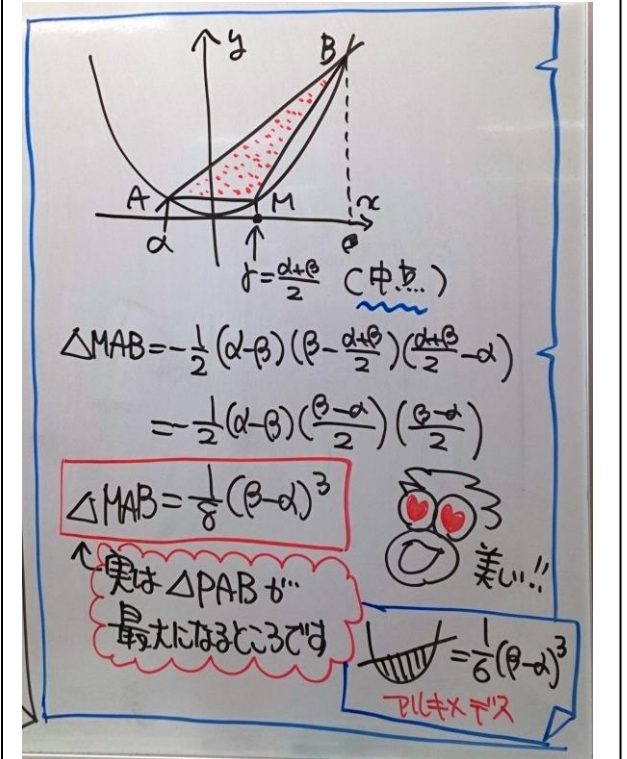 y
B
A
M
x
α
β
γ=α+β/2 (中点)
△MAB=-1/2(α-β)(β-α+β/2)(α+β/2-α)
=-1/2(α-β)(β-α/2)(β-α/2)
△MAB=1/8(β-α)³
美しい!!
実は△PABが…
最大になるところです
=1/6(β-α)³
アルキメデス